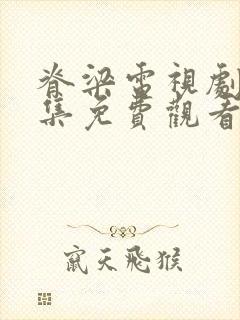 脊梁電視劇
集免費觀看
竄天飛猴